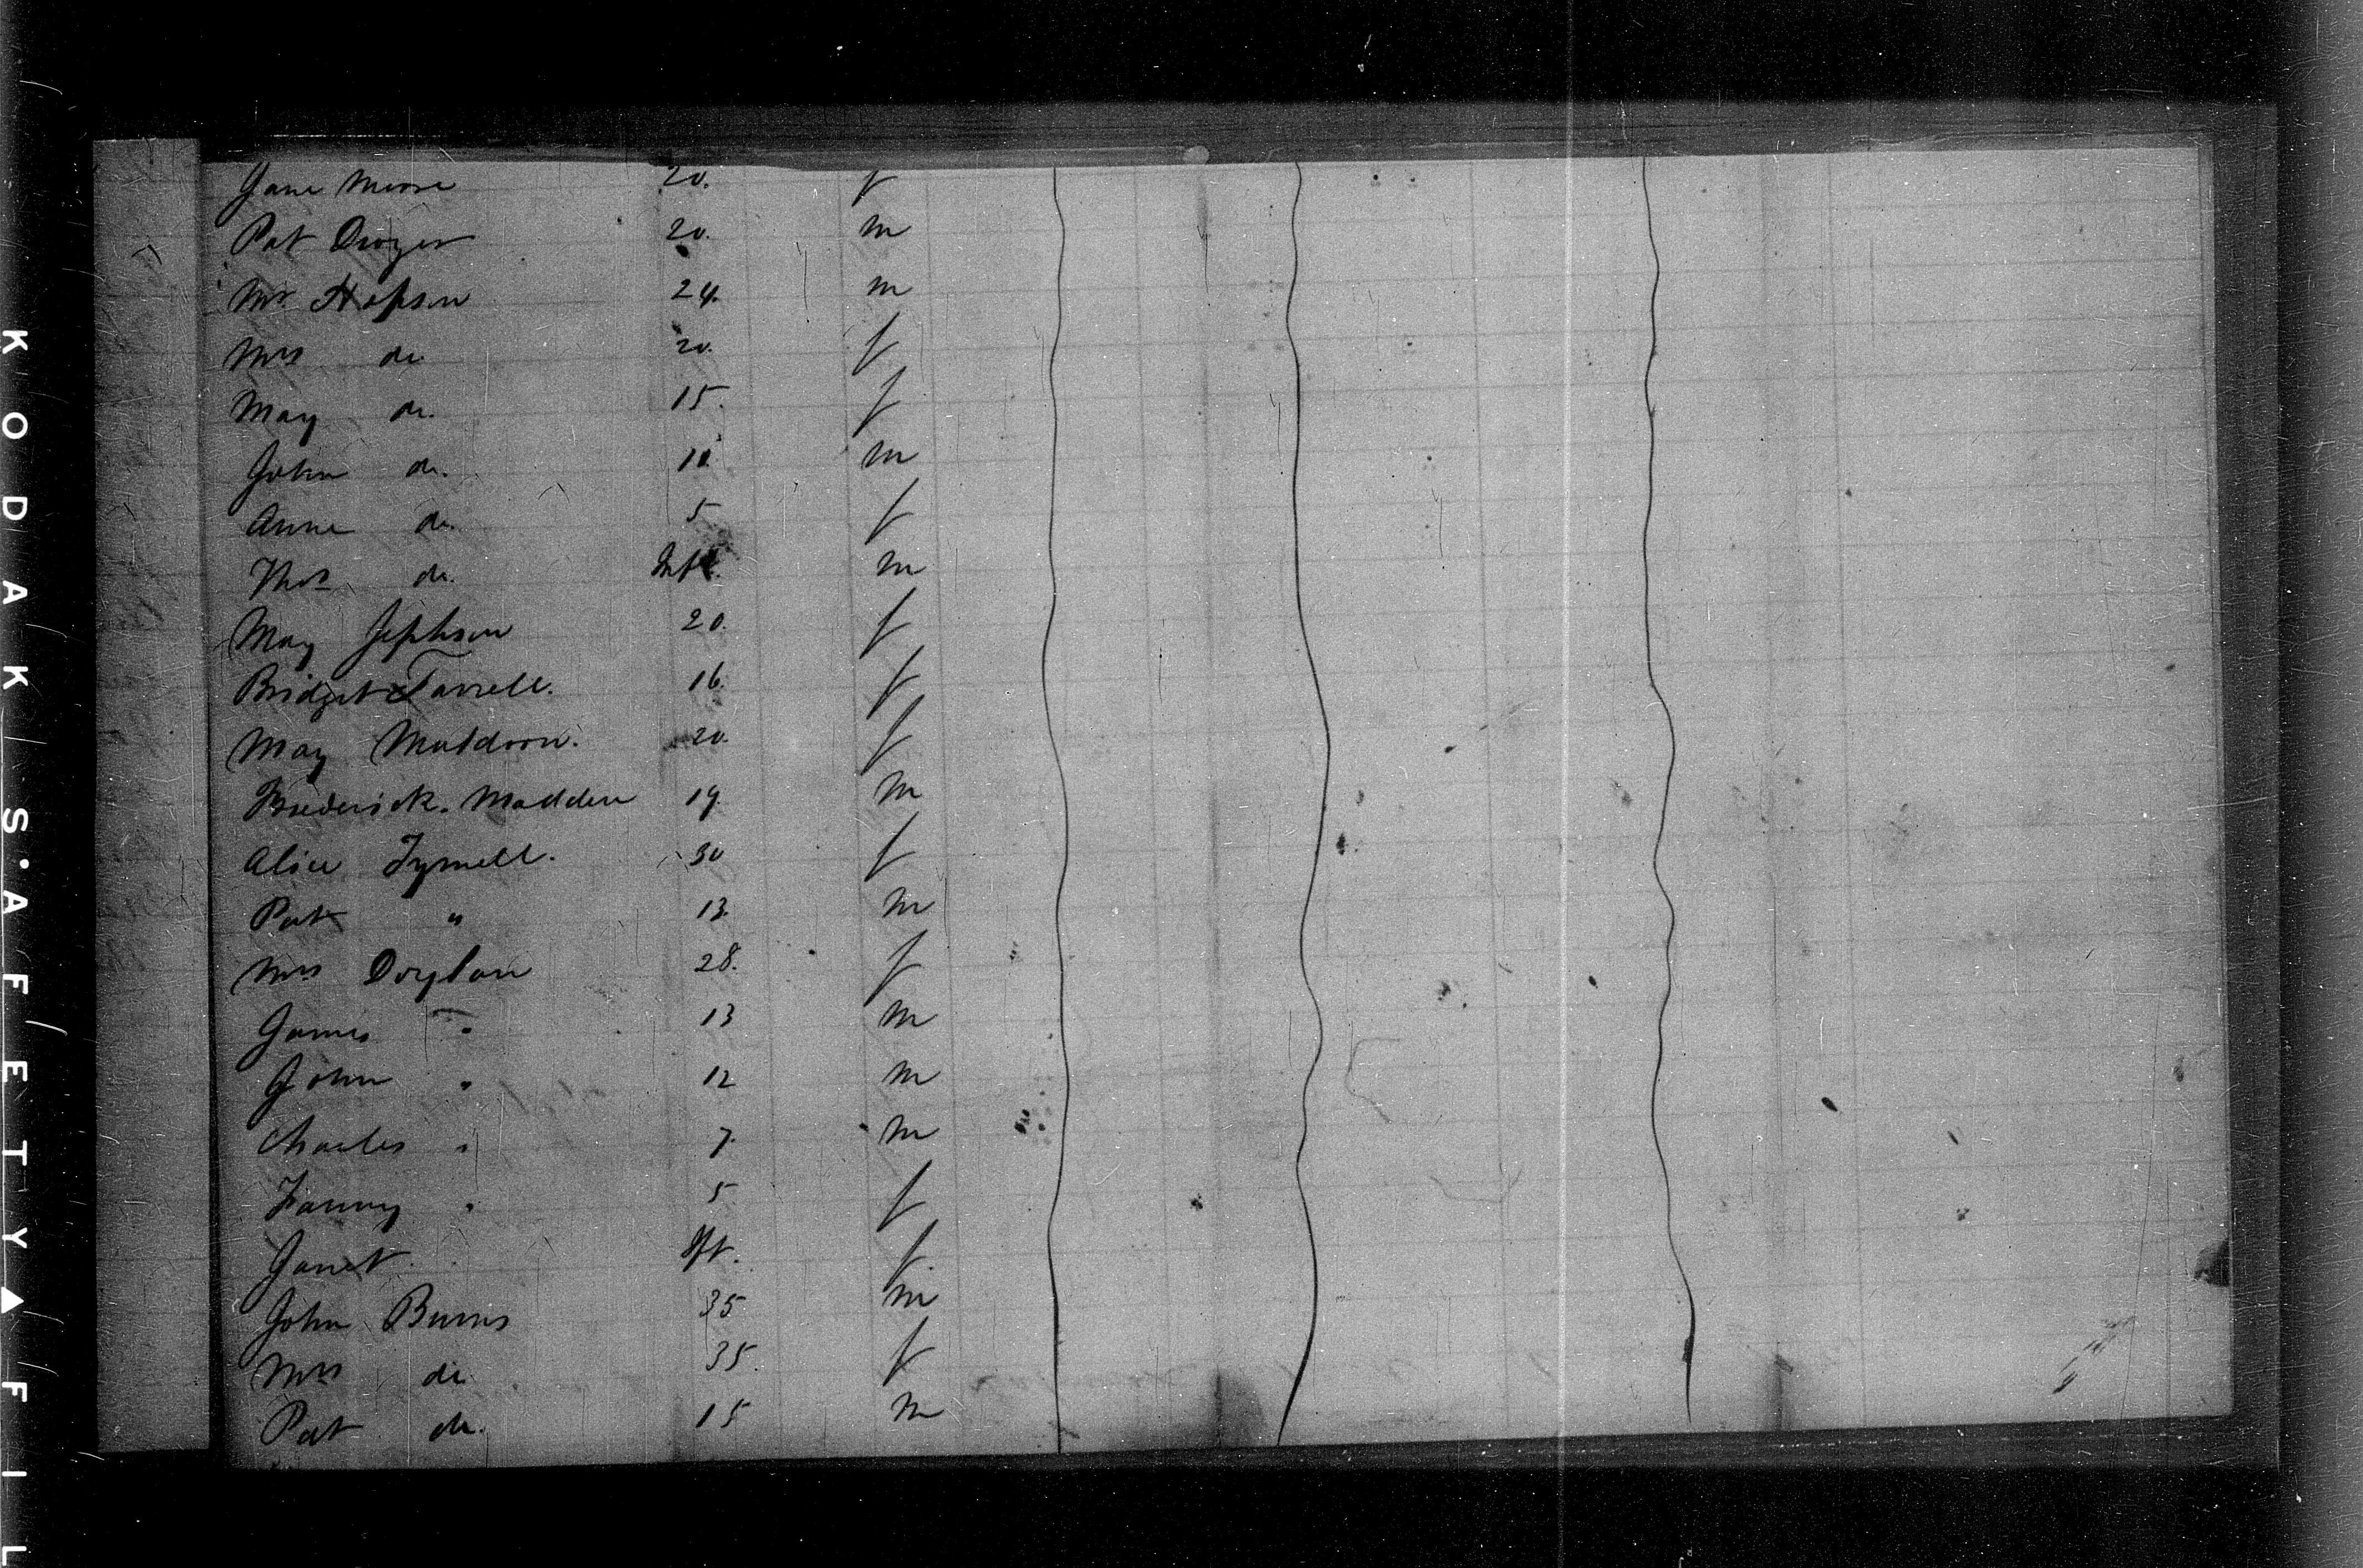 Jane Moore 20. f
Pat Dwyer 20. m
Mr Hopson 24. m
Mrs do 20. f
May do. 15. f
John do. 10 m
Anne do. 5 f
Thos do. Inft. m
May Jephson 20. f
Bridget Farrell. 16. f
May Muldoon. 20. f
Frederick. Madden 19. m
Alice Tyrrell. 30 f
Pat " 13. m
Mrs Doylan 28. f
James " 13 m
John " 12 m
Charles " 7. m
Fanny " 5 f
Janet Ift. f
John Burns 35 m
Mrs do 35. f
Pat do. 15 m
KODAK S.AFETY▲FIL